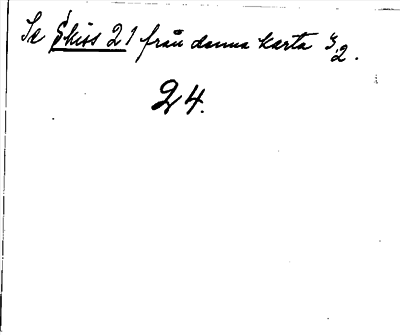 Se Skiss 21 från denna karta 3/2.
24.